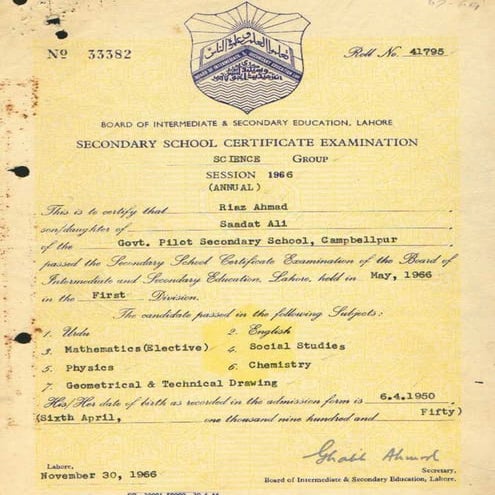 Nº 33382
Roll No. 41795
BOARD OF INTERMEDIATE & SECONDARY EDUCATION, LAHORE
SECONDARY SCHOOL CERTIFICATE EXAMINATION
SCIENCE GROUP
SESSION 1966
(ANNUAL)
This is to certify that Riaz Ahmad
son/daughter of Saadat Ali
of the Govt. Pilot Secondary School, Campbellpur
passed the Secondary School Certificate Examination of the Board of
Intermediate and Secondary Education, Lahore, held in May, 1966
in the First Division.
The candidate passed in the following Subjects:
1. Urdu 2. English
3. Mathematics(Elective) 4. Social Studies
5. Physics 6. Chemistry
7. Geometrical & Technical Drawing
His/Her date of birth as recorded in the admission form is 6.4.1950
(Sixth April, one thousand nine hundred and Fifty)
Lahore,
November 30, 1966
Secretary,
Board of Intermediate & Secondary Education, Lahore.